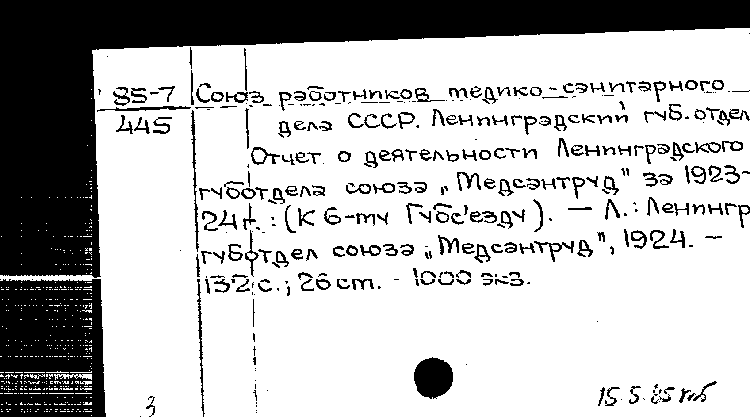 85-7 Союз работников медико-санитарного
445 дела СССР. Ленинградский губ. отдел
Отчет о деятельности Ленинградского
губотдела союза „Медсантруд" за 1923-
24 г. : (К 6-му Губс'езду). — Л. : Ленингр
губотдел союза „Медсантруд", 1924. —
132 с. ; 26 см. - 1000 экз.
3 15.5.85